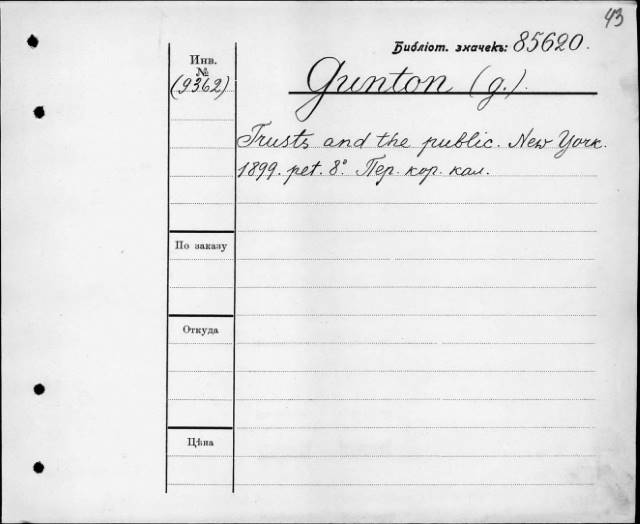 43
Библіот. значекъ: 85620.
Инв.
№
(9362)
Gunton (g.).
Trusts and the public. New York.
1899. pet. 8°. Пер. кор. кал.
По заказу
Откуда
Цѣна